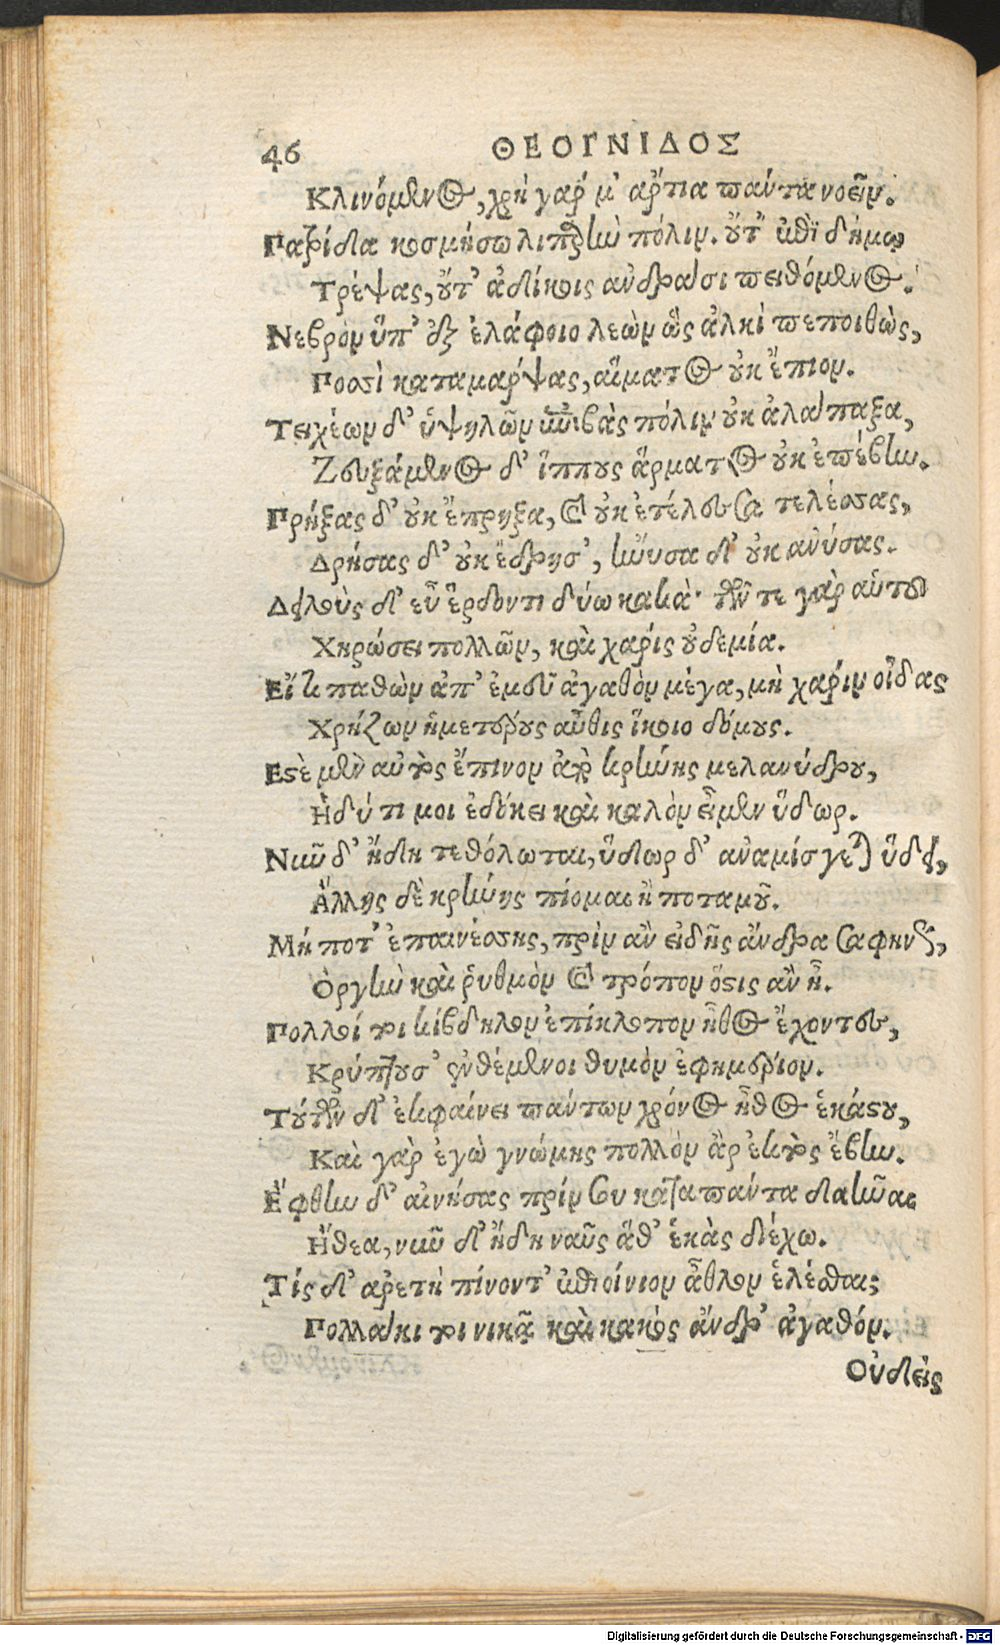 46 ΘΕΟΓΝΙΔΟΣ
Κλινόμενος, χρὴ γάρ μ' ἄρτια πάντα νοεῖν.
Πατρίδα κοσμήσω λιπαρὴν πόλιν. οὔτ' ἐπὶ δήμῳ
Τρέψας, οὔτ' ἀδίκοις ἀνδράσι πειθόμενος.
Νεβρὸν ὕπ' ἐξ ἐλάφοιο λεὼν ὣς ἀλκὶ πεποιθὼς,
Ποσσὶ καταμάρψας, αἵματος οὐκ ἔπιον.
Τειχέων δ' ὑψηλῶν ἐπιβὰς πόλιν οὐκ ἀλάπαξα,
Ζευξάμενος δ' ἵππους ἅρματος οὐκ ἐπέβην.
Πρήξας δ' οὐκ ἔπρηξα, καὶ οὐκ ἐτέλεσσα τελέσσας,
Δρήσας δ' οὐκ ἔδρησ', ἤνυσα δ' οὐκ ἀνύσας.
Δειλοὺς δ' εὖ ἕρδοντι δύω κακά· τῶν τε γὰρ αὑτοῦ
Χηρώσει πολλῶν, καὶ χάρις οὐδεμία.
Εἴ τι παθὼν ἀπ' ἐμεῦ ἀγαθὸν μέγα, μὴ χάριν οἶδας
Χρήζων ἡμετέρους αὖθις ἵκοιο δόμους.
Εστὲ μὲν αὐτὸς ἔπινον ἀπὸ κρήνης μελανύδρου,
Ἡδύ τι μοι ἐδόκει καὶ καλὸν εἶμεν ὕδωρ.
Νῦν δ' ἤδη τεθόλωται, ὕδωρ δ' ἀναμίσγεται ὕδει,
Ἄλλης δὲ κρήνης πίομαι ἢ ποταμοῦ.
Μή ποτ' ἐπαινέσσῃς, πρὶν ἂν εἰδῇς ἄνδρα σαφηνέως,
Ὀργὴν καὶ ῥυθμὸν καὶ τρόπον ὅστις ἂν ᾖ.
Πολλοί τοι κίβδηλον ἐπίκλοπον ἦθος ἔχοντες,
Κρύπτουσ' ἐνθέμενοι θυμὸν ἐφημέριον.
Τούτων δ' ἐκφαίνει πάντων χρόνος ἦθος ἑκάστου,
Καὶ γὰρ ἐγὼ γνώμης πολλὸν ἂρ ἐκτὸς ἔβην.
Ἔφθην δ' αἰνήσας πρίν σου κατὰ πάντα δαῆναι
Ἤθεα, νῦν δ' ἤδη ναῦς ἅθ' ἑκὰς διέχω.
Τίς δ' ἀρετὴ πίνοντ' ἐπιοίνιον ἆθλον ἑλέσθαι;
Πολλάκι τοι νικᾷ καὶ κακὸς ἄνδρ' ἀγαθόν.
Οὐδεὶς
Digitalisierung gefördert durch die Deutsche Forschungsgemeinschaft - DFG